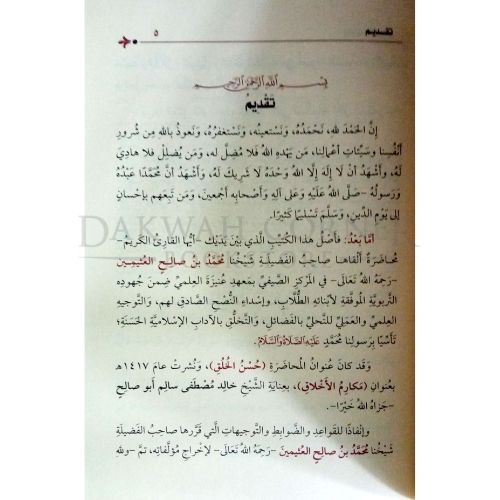 تقديم ٥
بِسْمِ اللَّهِ الرَّحْمَنِ الرَّحِيمِ
تَقْدِيمٌ
إِنَّ الحَمْدَ لله، نَحْمَدُهُ، وَنَسْتَعِينُه، وَنَسْتَغفِرُهُ، وَنَعوذُ بالله مِن شُرورِ
أَنْفُسِنا وسَيِّئاتِ أَعْمالِنا، مَن يَهدِه اللهُ فَلا مُضلَّ له، ومَن يُضلِلْ فلا هادِيَ
لَهُ، وَأَشْهَدُ أنْ لا إِلَهَ إِلَّا اللهُ وَحْدَهُ لا شَرِيكَ لَهُ، وَأَشْهَدُ أنَّ مُحَمَّدًا عَبْدُهُ
وَرَسولُهُ -صَلَّى اللهُ عَلَيْهِ وَعَلَى آلِهِ وَأَصْحابِهِ أَجمَعينَ، وَمَن تَبِعَهم بِإِحْسانٍ
إِلى يَوْمِ الدِّينِ، وَسَلَّمَ تَسْليمًا كَثيرًا.
أمَّا بَعدُ: فأَصْلُ هذا الكُتَيِّبِ الَّذي بَيْنَ يَدَيْكَ -أيُّها القارِئُ الكَريمُ-
مُحاضَرةٌ ألقاهَا صاحِبُ الفَضيلَةِ شَيْخُنا مُحَمَّدُ بنُ صالِحٍ العُثَيمِين
-رَحِمَهُ اللهُ تَعَالَى- في المَركَزِ الصَّيفِيِّ بمَعهَدِ عُنيزةَ العِلميِّ ضِمنَ جُهودِهِ
التَّربويَّةِ الموفَّقةِ لأبْنائِهِ الطُّلَّابِ، وإِسْداءِ النُّصْحِ الصَّادقِ لهم، والتَّوجيهِ
العِلميِّ والعَمَليِّ للتَّحلِّي بالفَضائلِ، والتَّخلُّقِ بالآدابِ الإسلاميَّةِ الحَسَنةِ؛
تأسِّيًا برَسولِنا مُحمَّدٍ عَلَيْهِ الصَّلَاةُ وَالسَّلَامُ.
وقَد كانَ عُنوانُ المُحاضَرةِ (حُسْنُ الخُلُقِ)، ونُشرتْ عامَ ١٤١٧هـ
بعُنوانِ (مَكارِمُ الأَخْلاقِ)، بعِنايَةِ الشَّيْخِ خالِد مُصْطَفى سالِم أَبو صالِح
-جَزاهُ اللهُ خَيْرًا-.
وإِنفاذًا للقَواعِدِ والضَّوابِطِ والتَّوجيهاتِ الَّتي قَرَّرها صاحِبُ الفَضيلَةِ
شَيْخُنا مُحَمَّدُ بنُ صالِحٍ العُثَيمِين -رَحِمَهُ اللهُ تَعَالَى- لإخراجِ مُؤلَّفاتِه، تمَّ -وللهِ